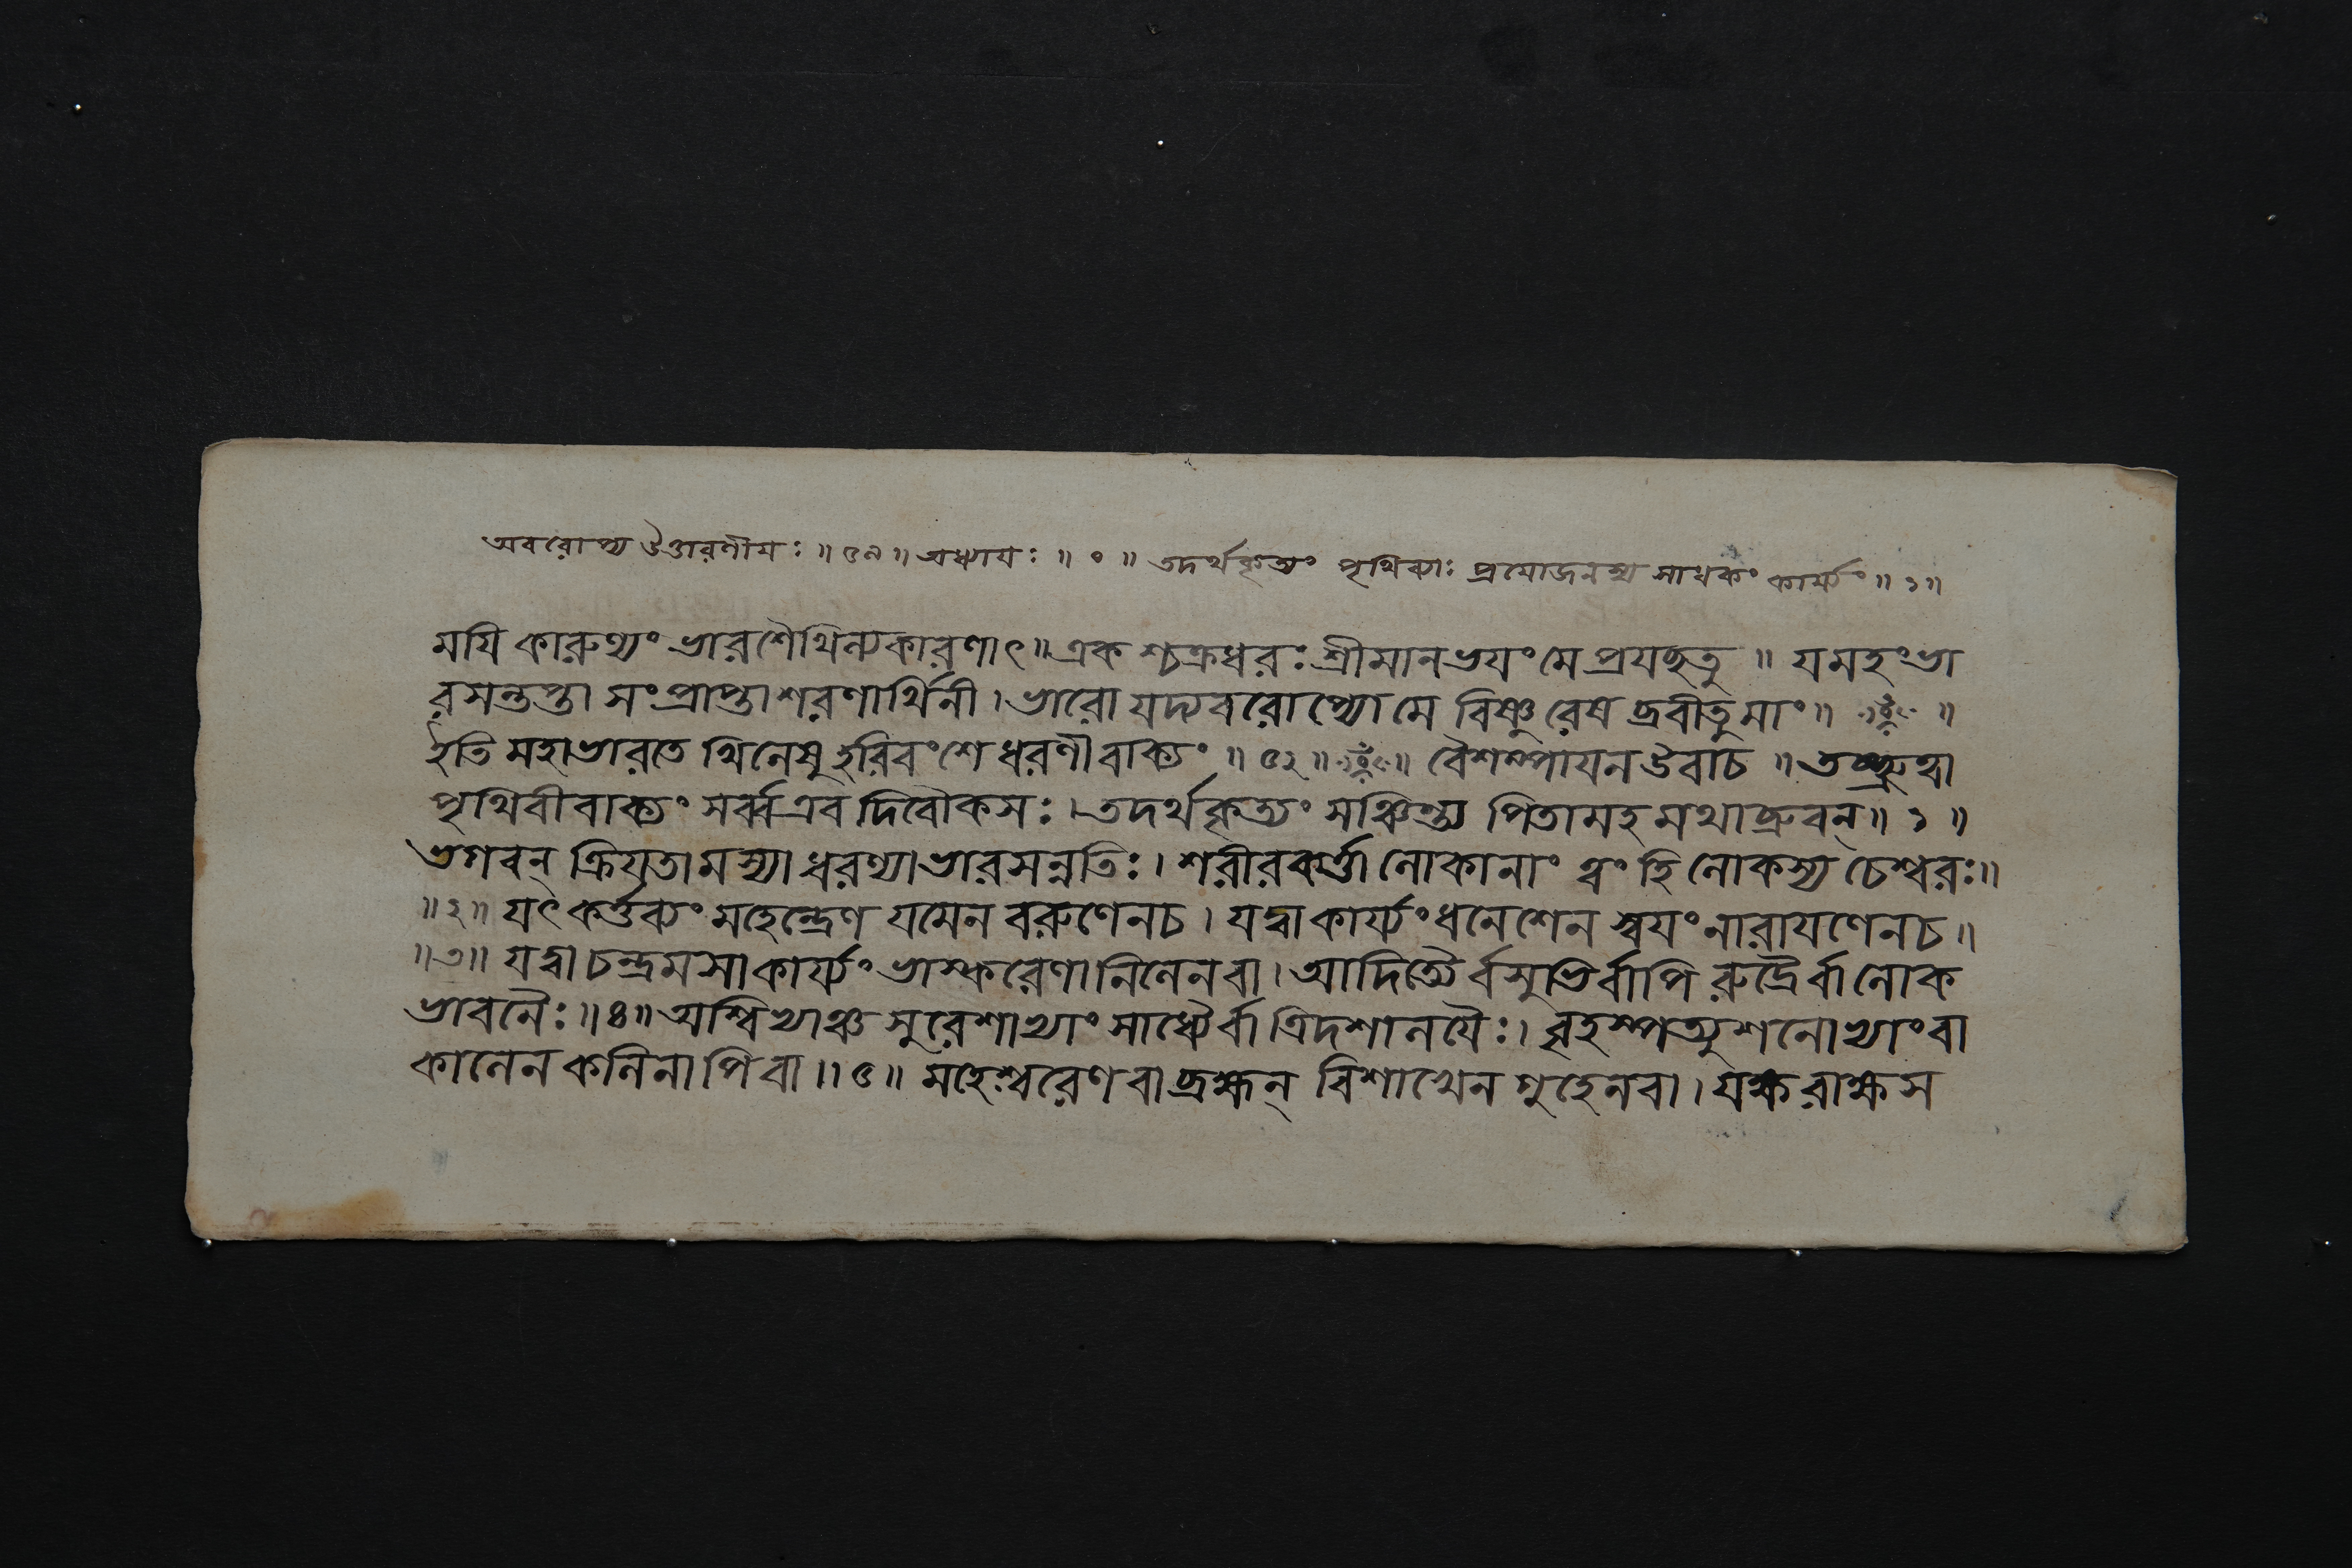 অবরোপ্য উত্তারণীয়ঃ ॥ ৫২ ॥ অধ্যায়ঃ ॥ ০ ॥ তদর্থকৃত্যং পৃথিব্যাঃ প্রয়োজনস্য সাধকং কার্য্যং ॥ ১ ॥
ময়ি কারুণ্যং ভারশৈথিল্যকারণাৎ ॥ একশ্চক্রধরঃ শ্রীমানভয়ং মে প্রযচ্ছতু ॥ যমহং ভা
রসন্তপ্তা সংপ্রাপ্তা শরণার্থিনী । ভারো যদ্যবরোপ্যো মে বিষ্ণুরেষ ব্রবীতু মাং ॥ ॥
ইতি মহাভারতে খিলেষু হরিবংশে ধরণীবাক্যং ॥ ৫২ ॥ ॥ বৈশম্পায়ন উবাচ ॥ তচ্ছ্রুত্বা
পৃথিবীবাক্যং সর্ব্ব এব দিবৌকসঃ । তদর্থকৃত্যং সঞ্চিন্ত্য পিতামহমথাব্রুবন্ ॥ ১ ॥
ভগবন্ ক্রিয়তামস্যা ধরণ্যা ভারসন্নতিঃ । শরীরকর্ত্তা লোকানাং ত্বং হি লোকস্য চেশ্বরঃ ॥
॥ ২ ॥ যৎ কর্ত্তব্যং মহেন্দ্রেণ যমেন বরুণেন চ । যদ্বা কার্য্যং ধনেশেন স্বয়ং নারায়ণেন চ ॥
॥ ৩ ॥ যদ্বা চন্দ্রমসা কার্য্যং ভাস্করেণানিলেন বা । আদিত্যৈর্বসুভির্বাপি রুদ্রৈর্বা লোক
ভাবনৈঃ ॥ ৪ ॥ অশ্বিভ্যাঞ্চ সুরেশাভ্যাং সাধ্যৈর্বা ত্রিদশালয়ৈঃ । বৃহস্পত্যুশনোভ্যাং বা
কালেন কলিনাপি বা ॥ ৫ ॥ মহেশ্বরেণ বা ব্রহ্মন্ বিশাখেন গুহেন বা । যক্ষরাক্ষস